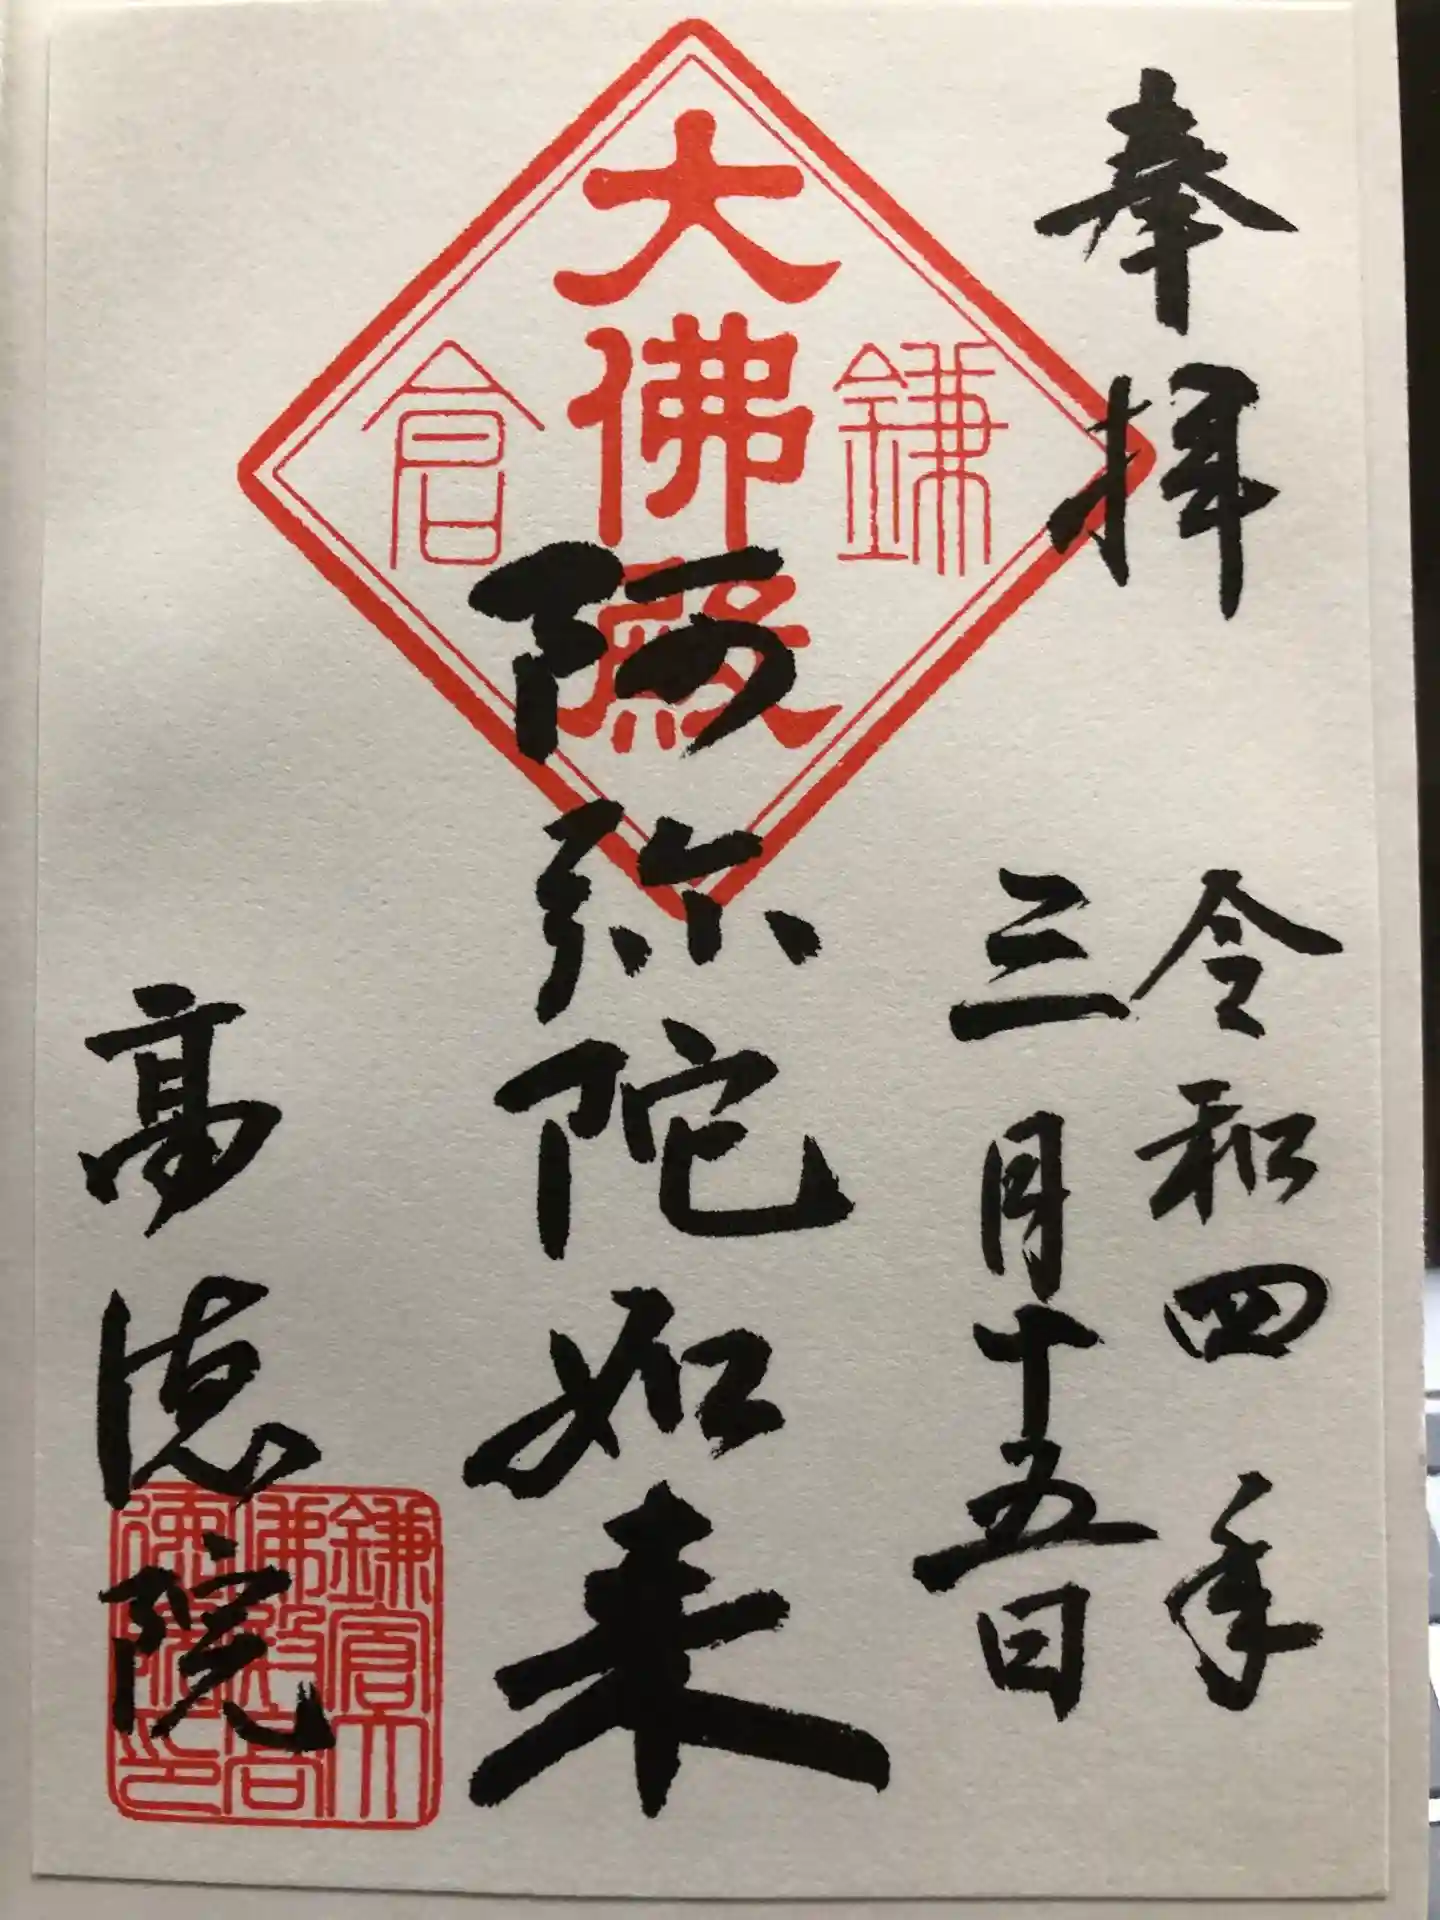 奉拝
令和四年
三月十五日
鎌
大佛殿
倉
阿弥陀如来
高徳院
鎌倉大
佛殿高
徳院印